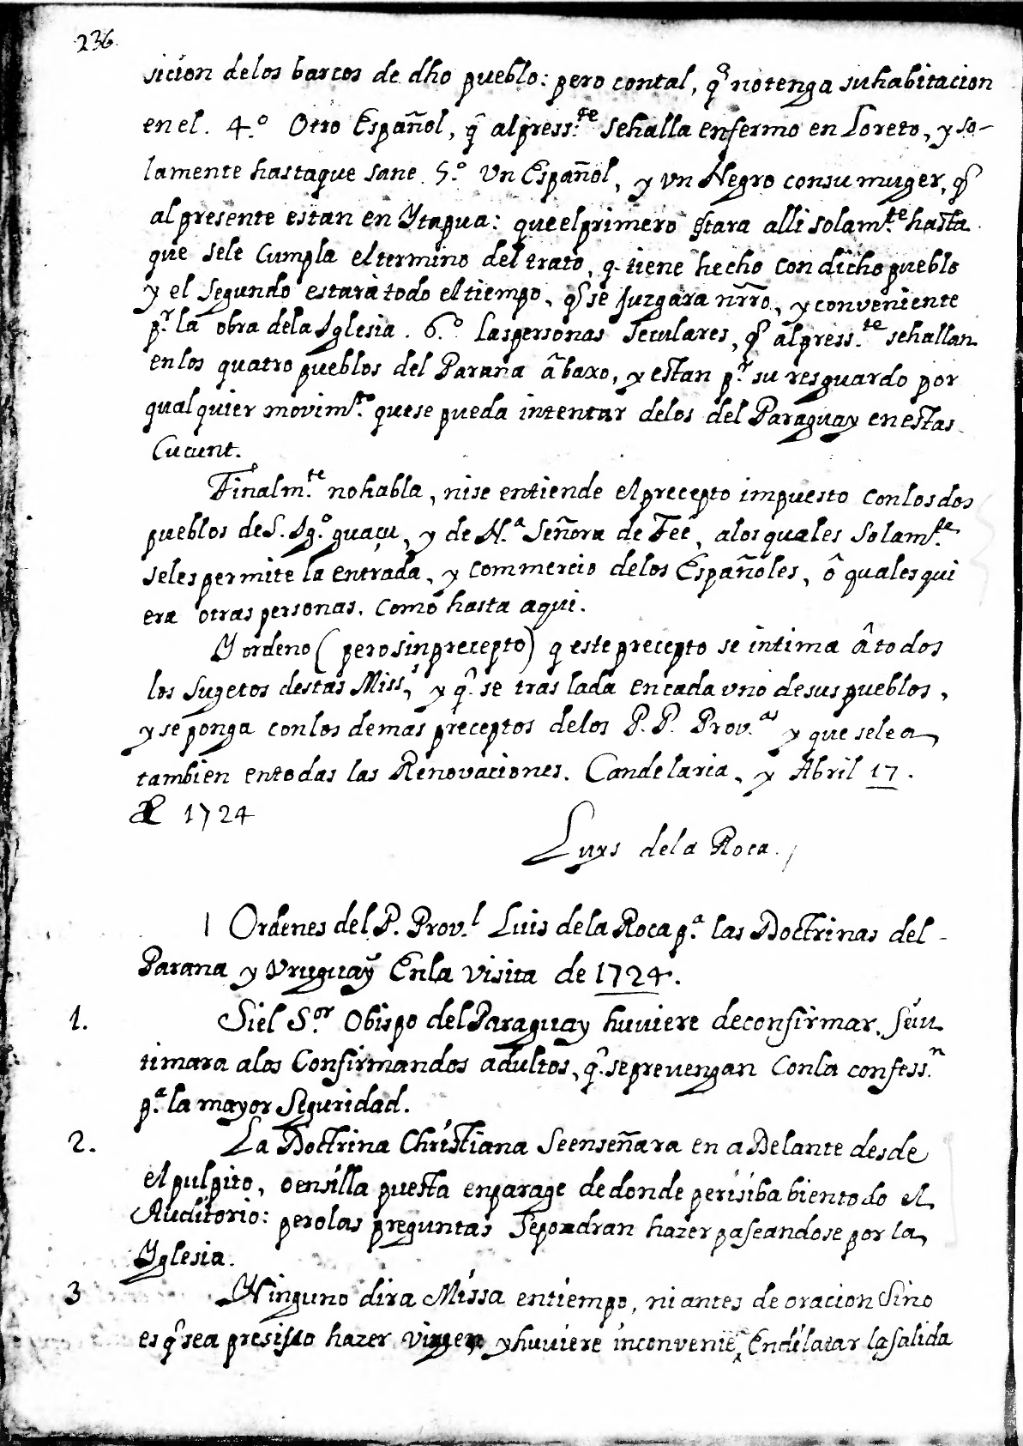 236
sicion delos barcos de dho pueblo: pero contal, q̃ notenga suhabitacion
enel. 4.º Otro Español, q̃ alpress.te sehalla enfermo en Loreto, y so-
lamente hastaque sane. 5.º Un Español, y vn Negro consu muger, q̃
al presente estan en Ytapua: que elprimero estara alli solam.te hasta
que sele Cumpla eltermino del trato, q tiene hecho con dicho pueblo
y el segundo estarà todo eltiempo, q̃ se Juzgara nrrõ, y conveniente
p.r la obra dela Iglesia. 6.º Las personas seculares, q̃ alpress.te sehallan
enlos quatro pueblos del Parana âbaxo, y estan p.r su resguardo por
qualquier movim.to quese pueda intentar delos del Paraguay enestas
Cucunt.
Finalm.te nohabla, nise entiende elprecepto impuesto conlosdos
pueblos deS. Ig.º guaçu, y de N.a Señora de Feê, alosquales Solam.te
seles permite la entrada, y commercio delos Españoles, ô qualesqui
era otras personas, como hasta aqui.
Y ordeno (pero sin precepto) q este precepto se intima âtodos
los Sugetos destas Miss.s y q̃ se traslada encada vno desus pueblos,
y se ponga conlos demas preceptos delos P.P. Prov.as y que selea
tambien entodas las Renovaciones. Candelaria, y Abril 17.
de 1724
Luys dela Roca.
1 Ordenes del P. Prov.l Luis dela Roca p.a las Doctrinas del
Parana y Vruguaỹ Enla visita de 1724.
1. Siel S.or Obispo del Paraguay huviere deconfirmar, sein
timara alos Confirmandos adultos, q̃ seprevengan Conla confess.n
p.a la mayor Seguridad.
2. La Doctrina Christiana Seenseñara en aDelante desde
el pulpito, oensilla puesta enparage dedonde perisiba bientodo el
Auditorio: perolas preguntas sepondran hazer paseandose por la
Yglesia.
3 Ninguno dira Missa entiempo, niantes de oracion Sino
es q̃ sea presisso hazer viage yhuviere inconvenie Endilatar la salida